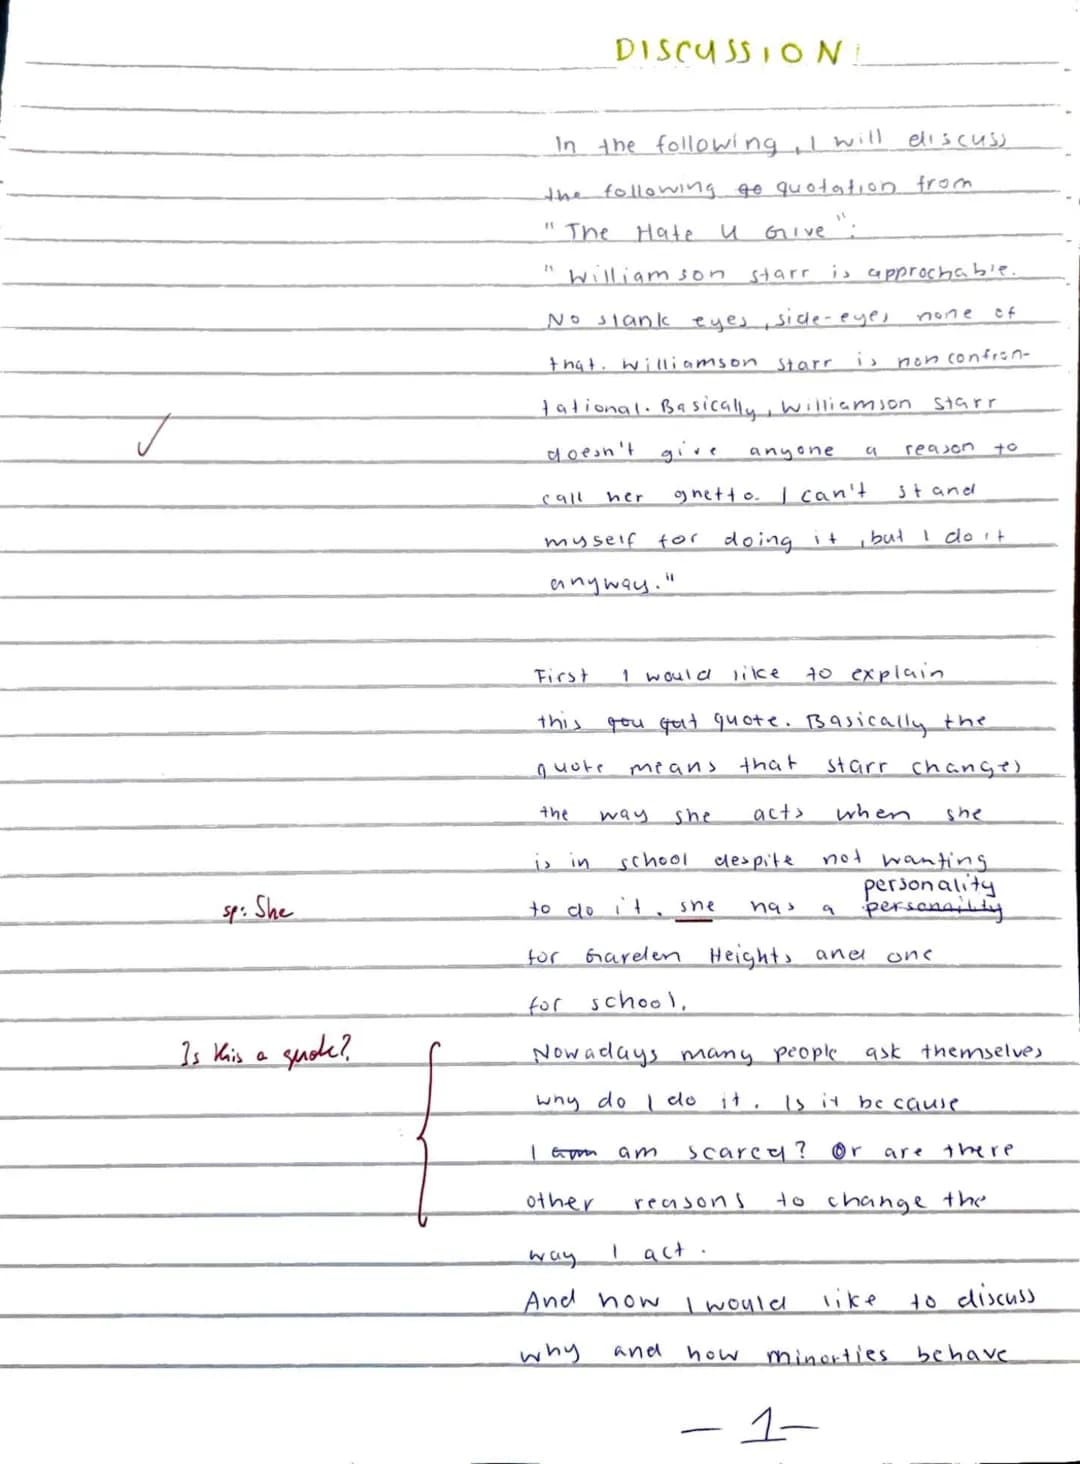 DISCUSSION!
In the following, I will discuss
the following qo quotation from
"The Hate U Give":
"Williamson starr is approchable.
No stank eyes, side-eyes none of
that. Williamson Starr is nonconfron-
tational. Basically, Williamson Starr
doesn't give anyone a reason to
call her ghetto. I can't stand
myself for doing it, but I do it
anyway."
First I would like to explain
this quote. Basically the
quote means that starr changes
the way she acts when she
is in school despite not wanting
personality
sp: She
to do it. she has a personailty
for Garden Heights and one
for school.
Is this a quote?
Nowadays many people ask themselves
why do I do it. Is it because
I am scared? Or are there
other reasons to change the
way I act.
And now I would like to discuss
why and how minorties behave
- 1 -